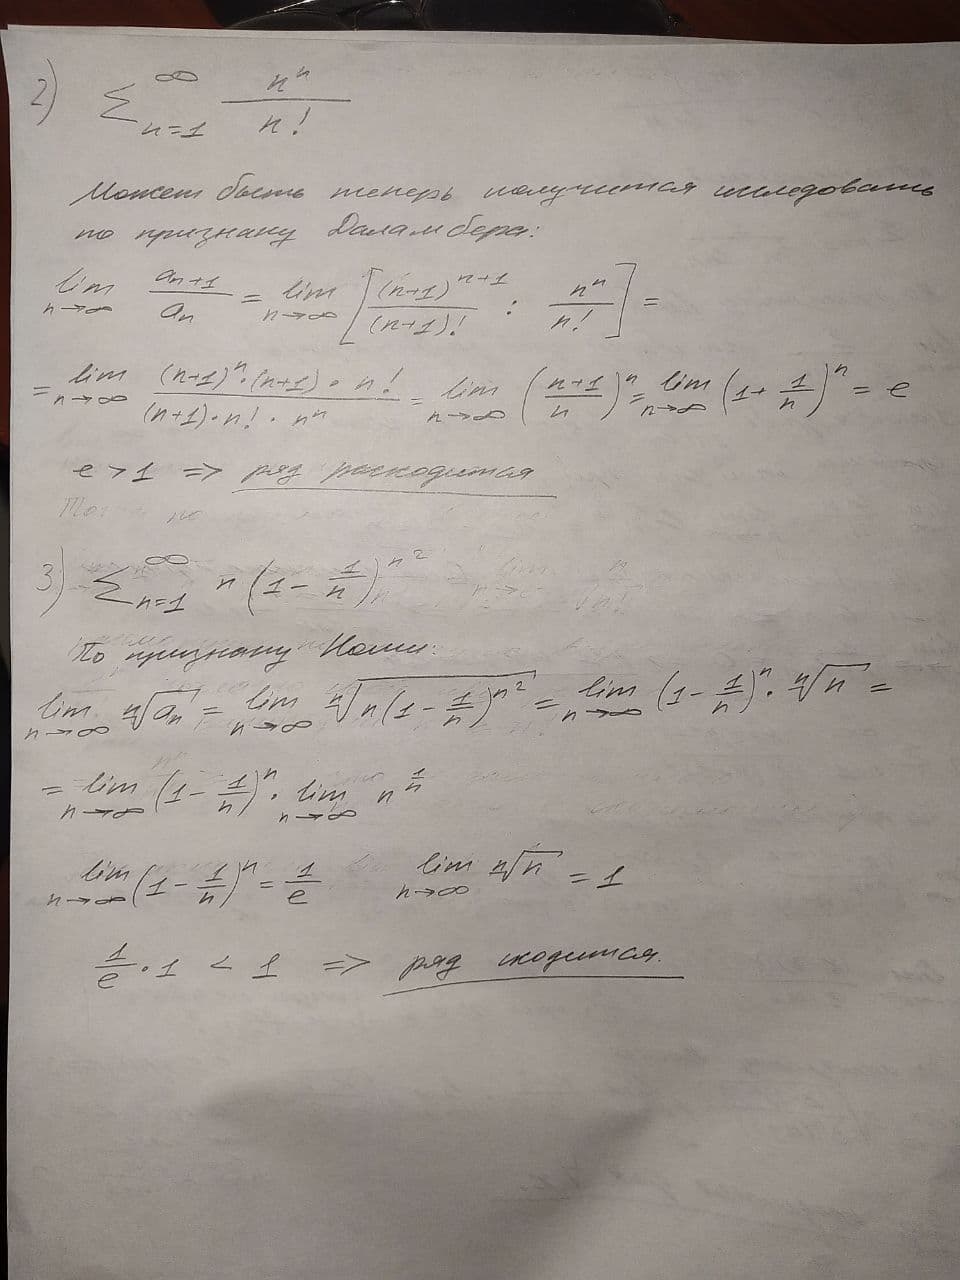 2) ∑_{n=1}^{∞} n^n / n!
Может быть теперь получится исследовать
по признаку Даламбера:
lim_{n→∞} a_{n+1} / a_n = lim_{n→∞} [ (n+1)^{n+1} / (n+1)! : n^n / n! ] =
= lim_{n→∞} (n+1)^n · (n+1) · n! / (n+1) · n! · n^n = lim_{n→∞} ( (n+1) / n )^n = lim_{n→∞} (1 + 1/n)^n = e
e > 1 => ряд расходится
3) ∑_{n=1}^{∞} n (1 - 1/n)^{n^2}
По признаку Коши:
lim_{n→∞} ⁿ√a_n = lim_{n→∞} ⁿ√(n(1 - 1/n)^{n^2}) = lim_{n→∞} (1 - 1/n)^n · ⁿ√n =
= lim_{n→∞} (1 - 1/n)^n · lim_{n→∞} n^{1/n}
lim_{n→∞} (1 - 1/n)^n = 1/e lim_{n→∞} ⁿ√n = 1
1/e · 1 < 1 => ряд сходится.